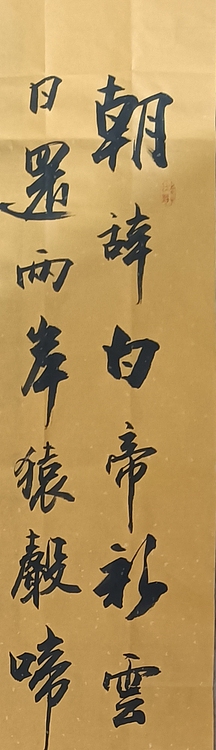 朝辞白帝彩雲
日還兩岸猿聲啼